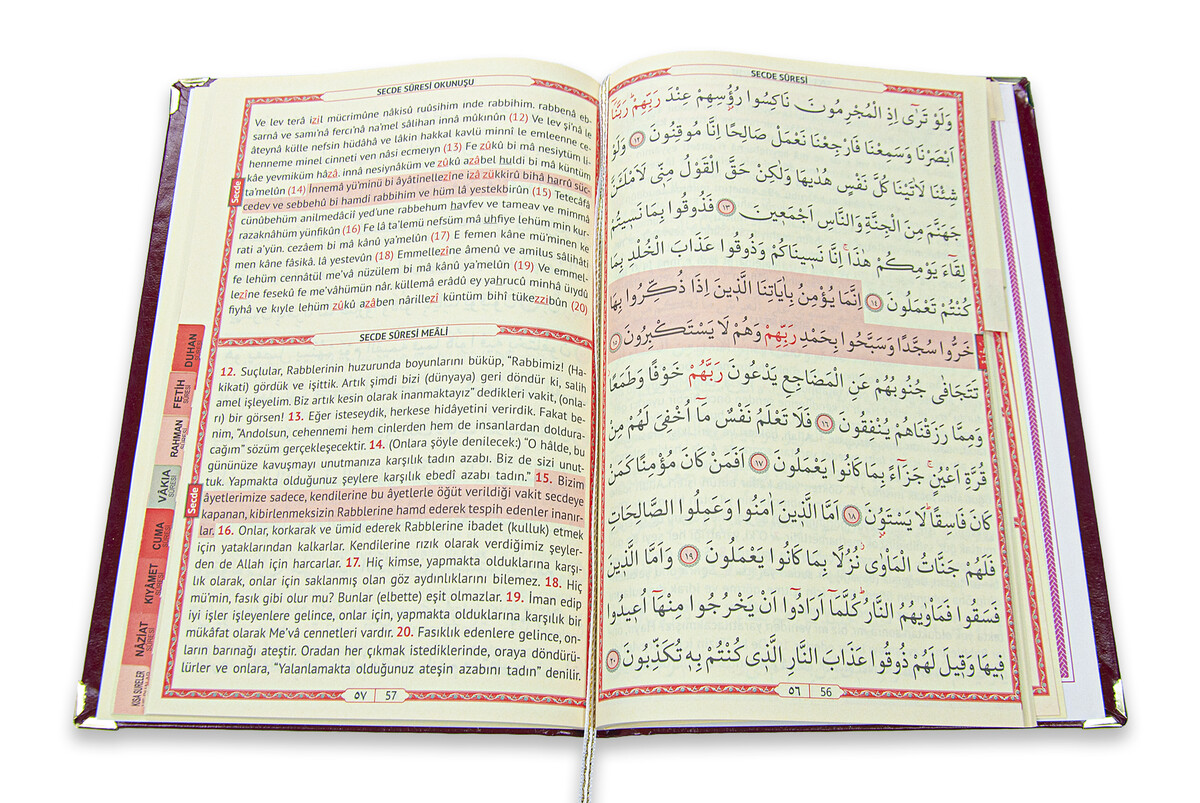 SECDE SÛRESİ OKUNUŞU
Ve lev terâ izil mücrimûne nâkisû ruûsihim ınde rabbihim. rabbenâ eb-
sarnâ ve sami'nâ ferci'nâ na'mel sâlihan innâ mûkınûn (12) Ve lev şi'nâ le
âteynâ külle nefsin hüdâhâ ve lâkin hakkal kavlü minnî le emleenne ce-
henneme minel cinneti ven nâsi ecmeıyn (13) Fe zûkû bi mâ nesiytüm li-
kâe yevmiküm hâzâ. innâ nesiynâküm ve zûkû azâbel huldi bi mâ küntüm
ta'melûn (14) İnnemâ yü'minü bi âyâtinellezîne izâ zükkirû bihâ harrû süc-
cedev ve sebbehû bi hamdi rabbihim ve hüm lâ yestekbirûn (15) Tetecâfâ
cünûbehüm anilmedâciıl yed'une rabbehum havfev ve tameav ve mimmâ
razaknâhüm yünfikûn (16) Fe lâ ta'lemü nefsüm mâ uhfiye lehüm min kur-
rati a'yün. cezâem bi mâ kânû ya'melûn (17) E femen kâne mü'minen ke
men kâne fâsikâ. lâ yestevûn (18) Emmellezîne âmenû ve amilus sâlihâti
fe lehüm cennâtül me'vâ nüzülem bi mâ kânû ya'melûn (19) Ve emmel-
lezîne fesekû fe me'vâhümün nâr. küllemâ erâdû ey yahrucû minhâ üıydû
fiyhâ ve kıyle lehüm zûkû azâben nârillezî küntüm bihî tükezzibûn (20)
Secde
SECDE SÛRESİ MEÂLİ
12. Suçlular, Rabblerinin huzurunda boyunlarını büküp, "Rabbimiz! (Ha-
kikati) gördük ve işittik. Artık şimdi bizi (dünyaya) geri döndür ki, salih
amel işleyelim. Biz artık kesin olarak inanmaktayız" dedikleri vakit, (onla-
rı) bir görsen! 13. Eğer isteseydik, herkese hidâyetini verirdik. Fakat be-
nim, "Andolsun, cehennemi hem cinlerden hem de insanlardan doldura-
cağım" sözüm gerçekleşecektir. 14. (Onlara şöyle denilecek:) "O hâlde, bu
gününüze kavuşmayı unutmanıza karşılık tadın azabı. Biz de sizi unut-
tuk. Yapmakta olduğunuz şeylere karşılık ebedî azabı tadın." 15. Bizim
âyetlerimize sadece, kendilerine bu âyetlerle öğüt verildiği vakit secdeye
kapanan, kibirlenmeksizin Rabblerine hamd ederek tespih edenler inanır-
lar. 16. Onlar, korkarak ve ümid ederek Rabblerine ibadet (kulluk) etmek
için yataklarından kalkarlar. Kendilerine rızık olarak verdiğimiz şeyler-
den de Allah için harcarlar. 17. Hiç kimse, yapmakta olduklarına karşı-
lık olarak, onlar için saklanmış olan göz aydınlıklarını bilemez. 18. Hiç
mü'min, fasık gibi olur mu? Bunlar (elbette) eşit olmazlar. 19. İman edip
iyi işler işleyenlere gelince, onlar için, yapmakta olduklarına karşılık bir
mükâfat olarak Me'vâ cennetleri vardır. 20. Fasıklık edenlere gelince, on-
ların barınağı ateştir. Oradan her çıkmak istediklerinde, oraya döndürü-
lürler ve onlara, "Yalanlamakta olduğunuz ateşin azabını tadın" denilir.
Secde
٥٧ 57
DUHAN SÛRESİ
FETİH SÛRESİ
RAHMAN SÛRESİ
VÂKIA SÛRESİ
CUMA SÛRESİ
KIYÂMET SÛRESİ
NÂZİAT SÛRESİ
KISA SURELER
SECDE SÛRESİ
وَلَوْ تَرٰٓى اِذِ الْمُجْرِمُونَ نَاكِسُوا رُؤُ۫سِهِمْ عِنْدَ رَبِّهِمْۜ رَبَّنَٓا
اَبْصَرْنَا وَسَمِعْنَا فَارْجِعْنَا نَعْمَلْ صَالِحًا اِنَّا مُوقِنُونَ ﴿١٢﴾ وَلَوْ
شِئْنَا لَاٰتَيْنَا كُلَّ نَفْسٍ هُدٰيهَا وَلٰكِنْ حَقَّ الْقَوْلُ مِنّ۪ي لَاَمْلَـَٔنَّ
جَهَنَّمَ مِنَ الْجِنَّةِ وَالنَّاسِ اَجْمَع۪ينَ ﴿١٣﴾ فَذُوقُوا بِمَا نَس۪يتُمْ
لِقَٓاءَ يَوْمِكُمْ هٰذَاۚ اِنَّا نَس۪ينَاكُمْ وَذُوقُوا عَذَابَ الْخُلْدِ بِمَا
كُنْتُمْ تَعْمَلُونَ ﴿١٤﴾ اِنَّمَا يُؤْمِنُ بِاٰيَاتِنَا الَّذ۪ينَ اِذَا ذُكِّرُوا بِهَا
خَرُّوا سُجَّدًا وَسَبَّحُوا بِحَمْدِ رَبِّهِمْ وَهُمْ لَا يَسْتَكْبِرُونَ ﴿١٥﴾
تَتَجَافٰى جُنُوبُهُمْ عَنِ الْمَضَاجِعِ يَدْعُونَ رَبَّهُمْ خَوْفًا وَطَمَعًا
وَمِمَّا رَزَقْنَاهُمْ يُنْفِقُونَ ﴿١٦﴾ فَلَا تَعْلَمُ نَفْسٌ مَٓا اُخْفِيَ لَهُمْ مِنْ
قُرَّةِ اَعْيُنٍۚ جَزَٓاءً بِمَا كَانُوا يَعْمَلُونَ ﴿١٧﴾ اَفَمَنْ كَانَ مُؤْمِنًا كَمَنْ
كَانَ فَاسِقًاۜ لَا يَسْتَوُ۫نَ ﴿١٨﴾ اَمَّا الَّذ۪ينَ اٰمَنُوا وَعَمِلُوا الصَّالِحَاتِ
فَلَهُمْ جَنَّاتُ الْمَأْوٰىۘ نُزُلًا بِمَا كَانُوا يَعْمَلُونَ ﴿١٩﴾ وَاَمَّا الَّذ۪ينَ
فَسَقُوا فَمَأْوٰيهُمُ النَّارُۜ كُلَّمَٓا اَرَادُٓوا اَنْ يَخْرُجُوا مِنْهَٓا اُع۪يدُوا
ف۪يهَا وَق۪يلَ لَهُمْ ذُوقُوا عَذَابَ النَّارِ الَّذ۪ي كُنْتُمْ بِه۪ تُكَذِّبُونَ ﴿٢٠﴾
٥٦ 56